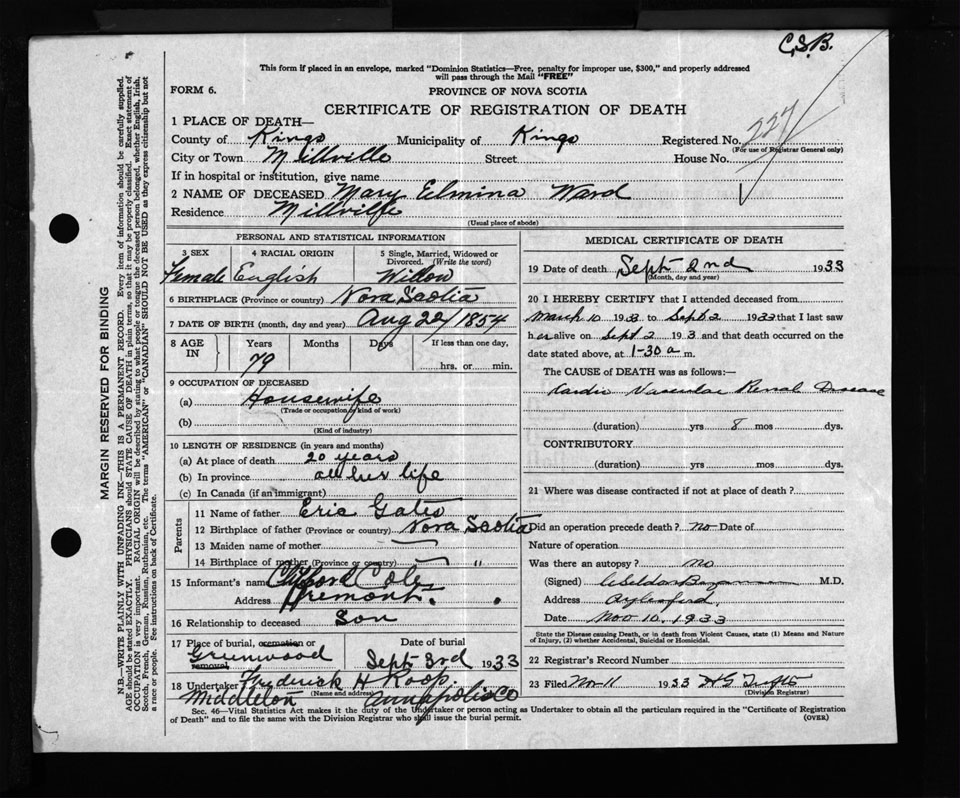 C.S.B.
This form if placed in an envelope, marked "Dominion Statistics—Free, penalty for improper use, $300," and properly addressed
will pass through the Mail "FREE"
FORM 6.
PROVINCE OF NOVA SCOTIA
CERTIFICATE OF REGISTRATION OF DEATH
1 PLACE OF DEATH—
County of Kings Municipality of Kings Registered No. 227
(For use of Registrar General only)
City or Town Millville Street House No.
If in hospital or institution, give name
2 NAME OF DECEASED Mary Elmina Ward
Residence Millville
(Usual place of abode)
PERSONAL AND STATISTICAL INFORMATION
3 SEX 4 RACIAL ORIGIN 5 Single, Married, Widowed or
Divorced. (Write the word)
Female English Widow
6 BIRTHPLACE (Province or country) Nova Scotia
7 DATE OF BIRTH (month, day and year) Aug 22/1854
8 AGE IN Years Months Days If less than one day,
79 hrs. or min.
9 OCCUPATION OF DECEASED
(a) Housewife
(Trade or occupation or kind of work)
(b)
(Kind of industry)
10 LENGTH OF RESIDENCE (in years and months)
(a) At place of death 20 years
(b) In province all her life
(c) In Canada (if an immigrant)
Parents
11 Name of father Eric Gates
12 Birthplace of father (Province or country) Nova Scotia
13 Maiden name of mother —
14 Birthplace of mother (Province or country) — "
15 Informant's name Clifford Cole
Address Tremont
16 Relationship to deceased Son
17 Place of burial, cremation or removal Date of burial
Greenwood Sept 3rd 1933
18 Undertaker Frederick H Roop.
(Name and address)
Middleton Annapolis Co
MEDICAL CERTIFICATE OF DEATH
19 Date of death Sept 2nd 1933
(Month, day and year)
20 I HEREBY CERTIFY that I attended deceased from
March 10 1933 to Sept 2 1933 that I last saw
her alive on Sept 2 193 3 and that death occurred on the
date stated above, at 1-30 a m.
The CAUSE of DEATH was as follows:—
Cardio Vascular Renal Disease
(duration) yrs 8 mos dys.
CONTRIBUTORY
(duration) yrs mos dys.
21 Where was disease contracted if not at place of death?
Did an operation precede death? no Date of
Nature of operation
Was there an autopsy? no
(Signed) M.D.
Address Aylesford.
Date Nov 10, 1933
State the Disease causing Death, or in death from Violent Causes, state (1) Means and Nature
of Injury, (2) whether Accidental, Suicidal or Homicidal.
22 Registrar's Record Number
23 Filed Nov 11 1933
(Division Registrar)
Sec. 46—Vital Statistics Act makes it the duty of the Undertaker or person acting as Undertaker to obtain all the particulars required in the "Certificate of Registration
of Death" and to file the same with the Division Registrar who shall issue the burial permit. (OVER)
MARGIN RESERVED FOR BINDING
N.B.—WRITE PLAINLY WITH UNFADING INK—THIS IS A PERMANENT RECORD. Every item of information should be carefully supplied.
AGE should be stated EXACTLY. PHYSICIANS should STATE CAUSE OF DEATH in plain terms, so that it may be properly classified. Exact statement of
OCCUPATION is very important. RACIAL ORIGIN will be described by stating to what people or tongue the deceased person belonged, whether English, Irish,
Scotch, French, German, Russian, Ruthenian, etc. The terms "AMERICAN" or "CANADIAN" SHOULD NOT BE USED as they express citizenship but not
a race or people. See instructions on back of Certificate.